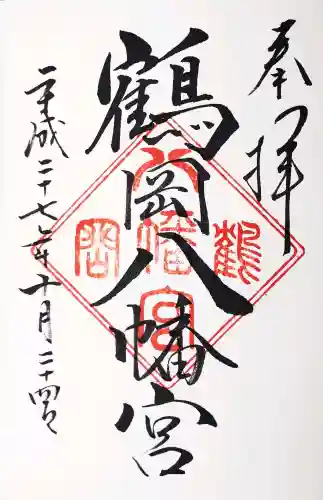 奉拝
鶴岡八幡宮
平成二十七年十月二十四日
鶴
八幡宮
岡